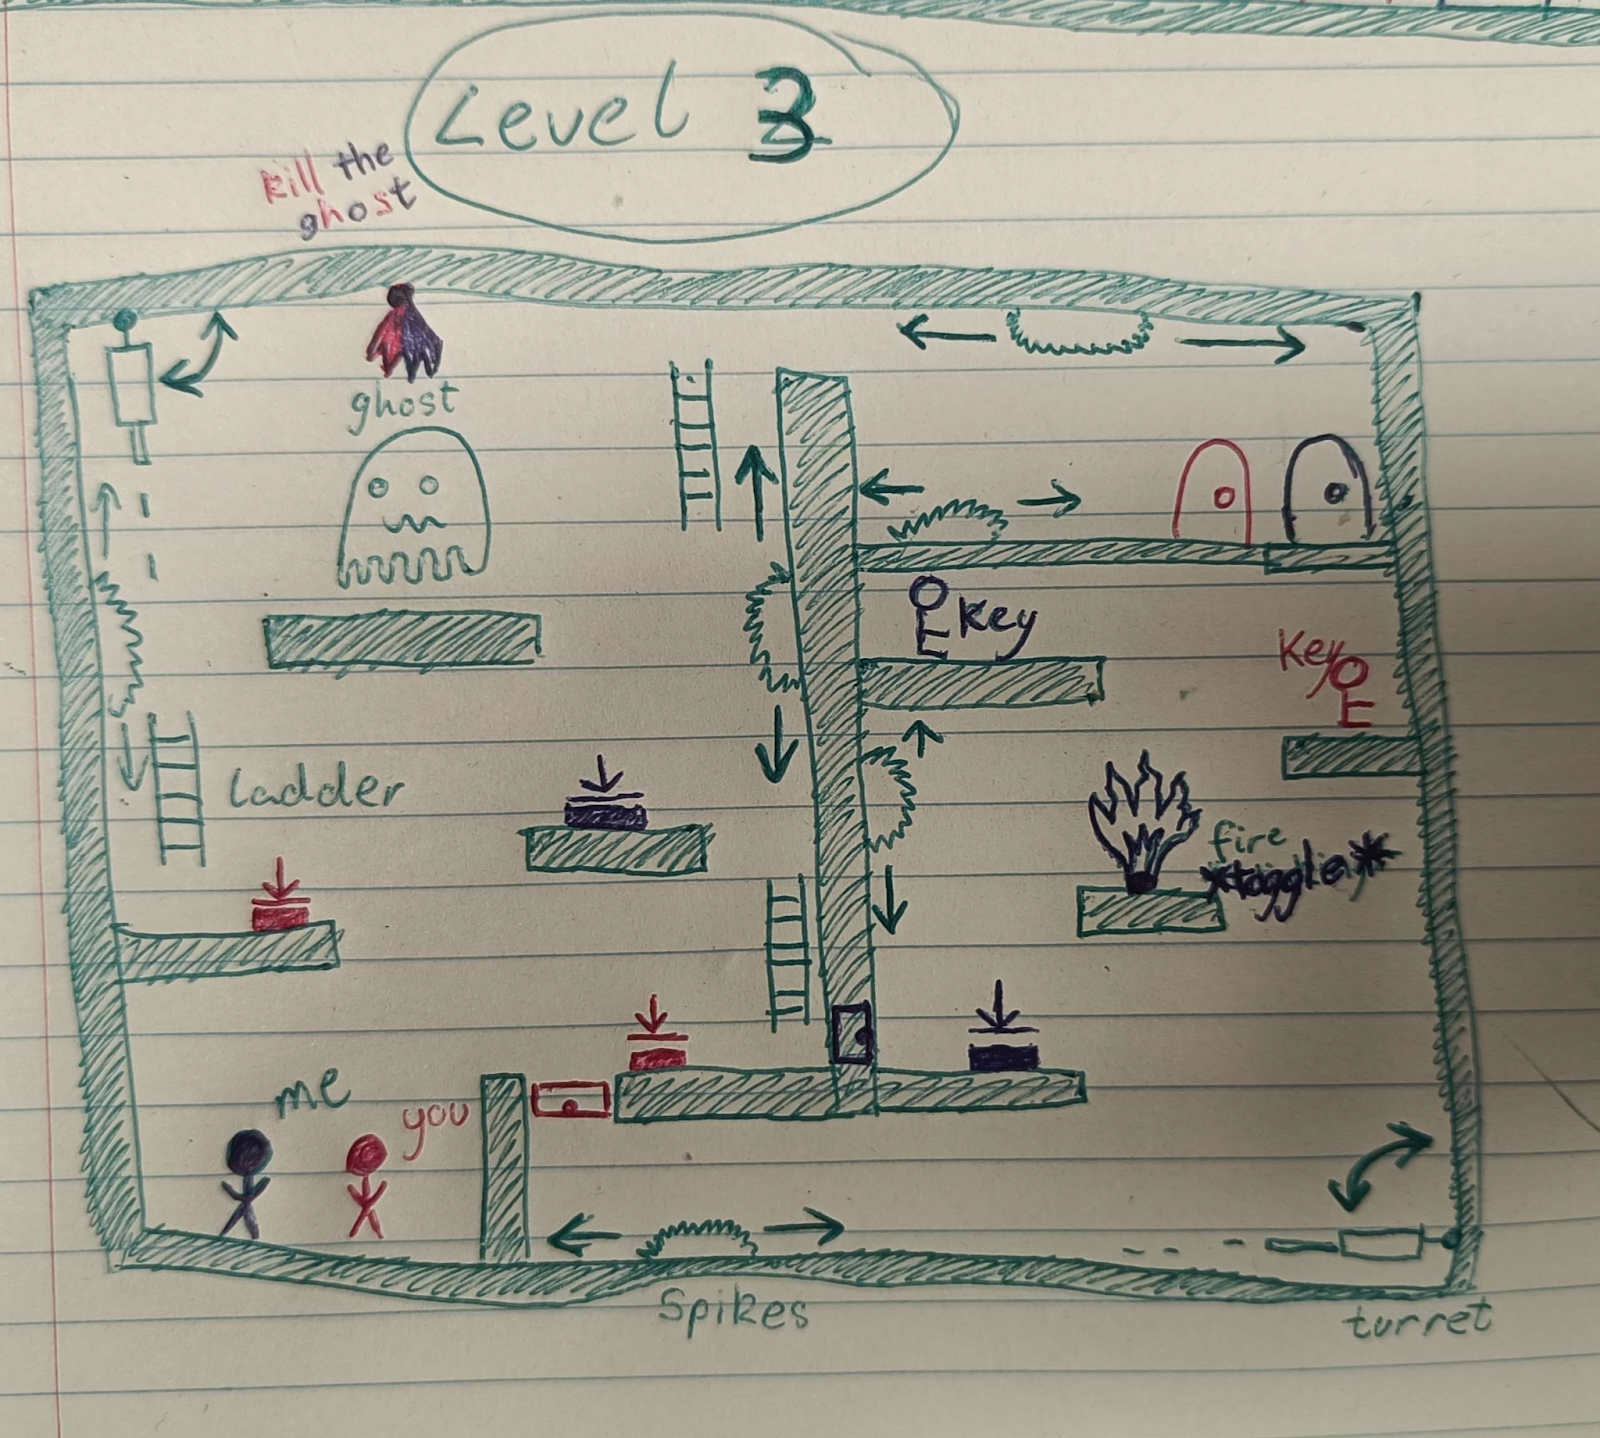 Level 3
kill the
ghost
ghost
key
key
ladder
fire
*toggle*
me
you
Spikes
turret